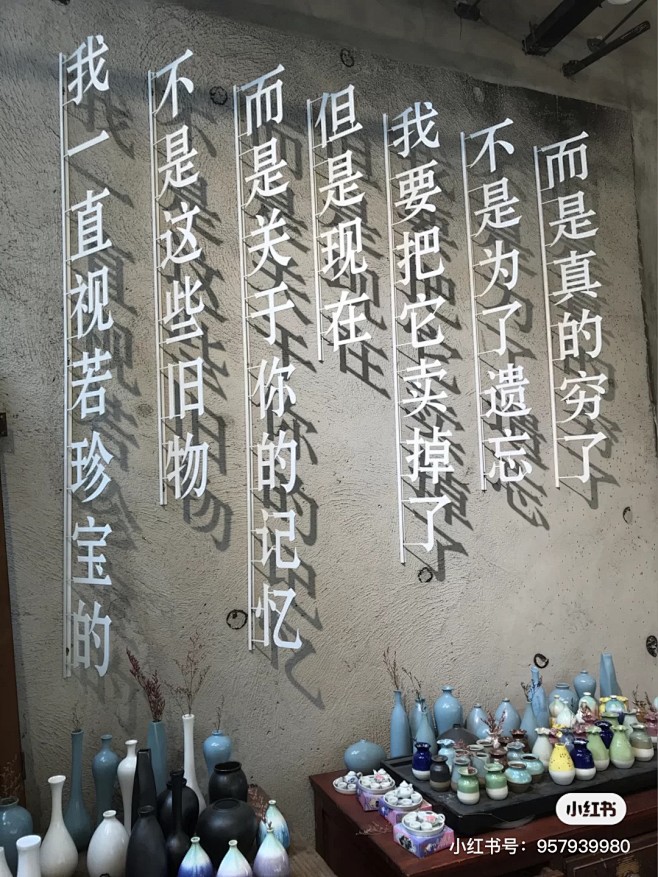 我一直视若珍宝的
不是这些旧物
而是关于你的记忆
但是现在
我要把它卖掉了
不是为了遗忘
而是真的穷了
小红书
小红书号：957939980